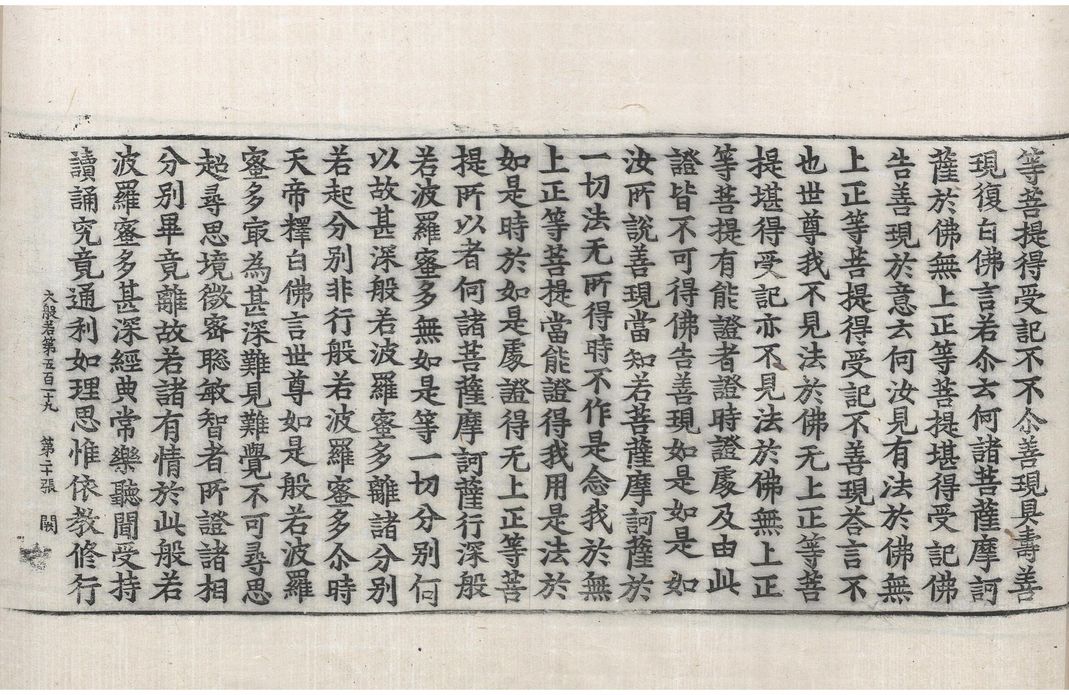 等菩提得受記不不尒善現具壽善
現復白佛言若尒云何諸菩薩摩訶
薩於佛無上正等菩提堪得受記佛
告善現於意云何汝見有法於佛無
上正等菩提得受記不善現荅言不
也世尊我不見法於佛无上正等菩
提堪得受記亦不見法於佛無上正
等菩提有能證者證時證處及由此
證皆不可得佛告善現如是如是如
汝所說善現當知若菩薩摩訶薩於
一切法无所得時不作是念我於無
上正等菩提當能證得我用是法於
如是時於如是處證得无上正等菩
提所以者何諸菩薩摩訶薩行深般
若波羅蜜多無如是等一切分別何
以故甚深般若波羅蜜多離諸分別
若起分別非行般若波羅蜜多尒時
天帝釋白佛言世尊如是般若波羅
蜜多冣為甚深難見難覺不可尋思
超尋思境微密聡敏智者所證諸相
分別畢竟離故若諸有情於此般若
波羅蜜多甚深經典常樂聽聞受持
讀誦究竟通利如理思惟依教修行
大般若第五百一十九 第二十張 闕